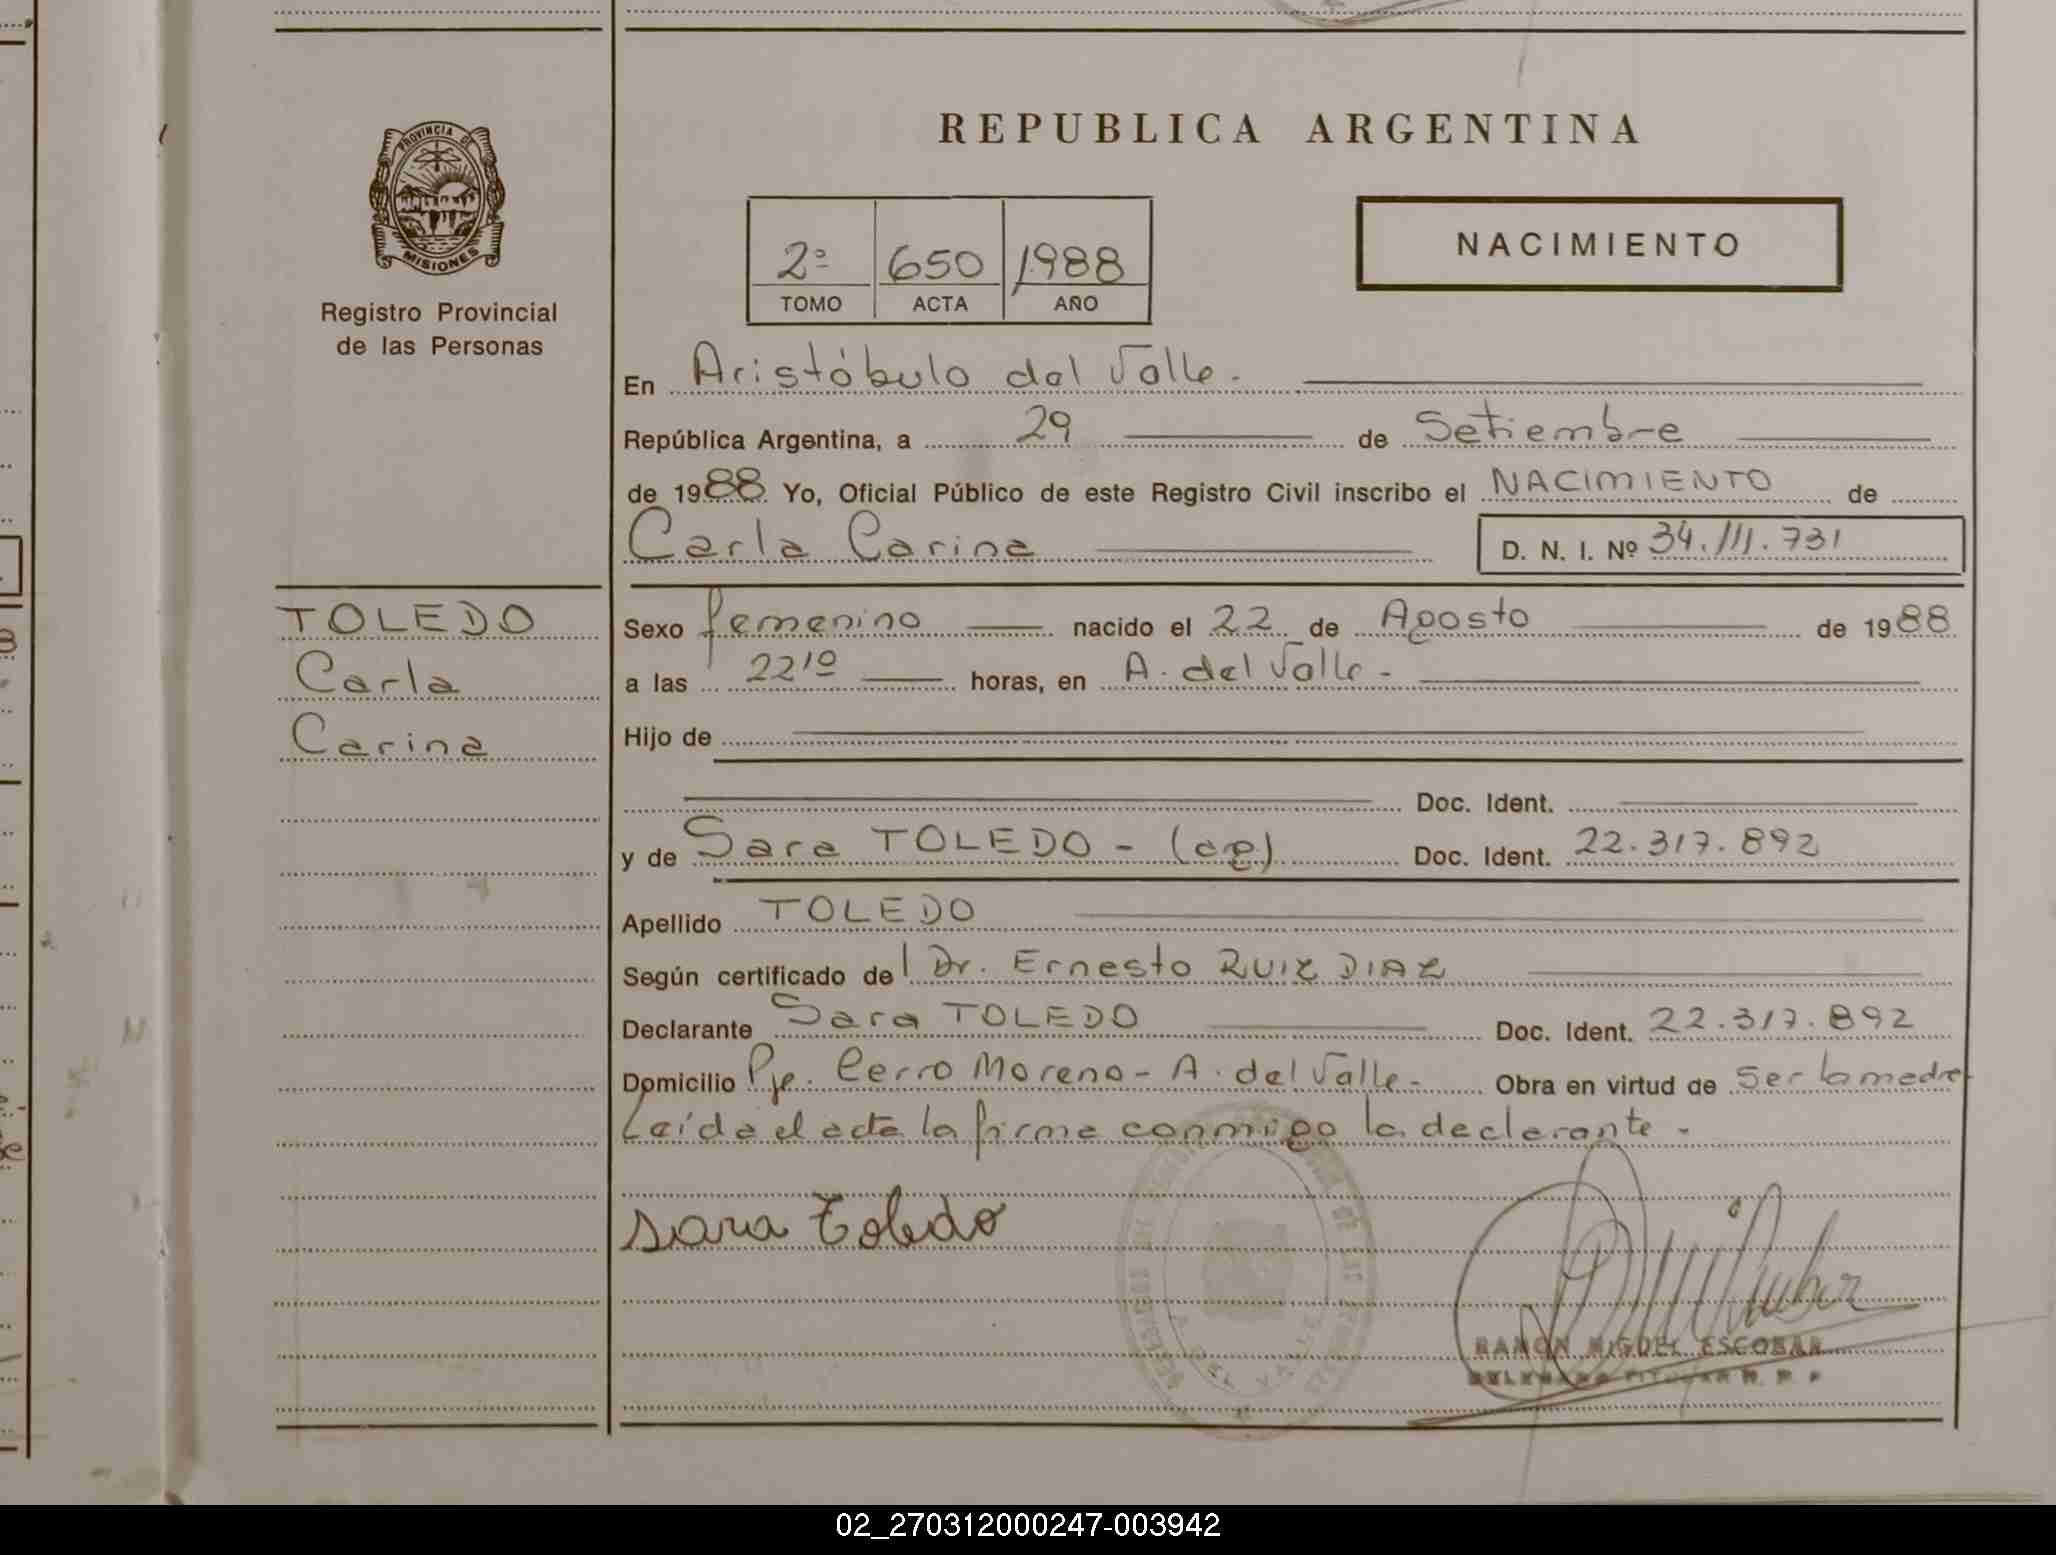 REPUBLICA ARGENTINA
PROVINCIA DE
MISIONES
Registro Provincial
de las Personas
2º 650 1988
TOMO ACTA AÑO
NACIMIENTO
En Aristóbulo del Valle.
República Argentina, a 29 de Setiembre
de 1988 Yo, Oficial Público de este Registro Civil inscribo el NACIMIENTO de
Carla Carina D. N. I. Nº 34.111.731
TOLEDO
Carla
Carina
Sexo femenino nacido el 22 de Agosto de 1988
a las 22¹⁰ horas, en A. del Valle -
Hijo de
Doc. Ident.
y de Sara TOLEDO - (ag) Doc. Ident. 22.317.892
Apellido TOLEDO
Según certificado de Dr. Ernesto RUIZ DIAZ
Declarante Sara TOLEDO Doc. Ident. 22.317.892
Domicilio Pje. Cerro Moreno - A. del Valle - Obra en virtud de ser la madre
Leída el acta la firma conmigo la declarante -
Sara Toledo
RAMON MIGUEL ESCOBAR
DELEGADO TITULAR R. P. P
02_270312000247-003942